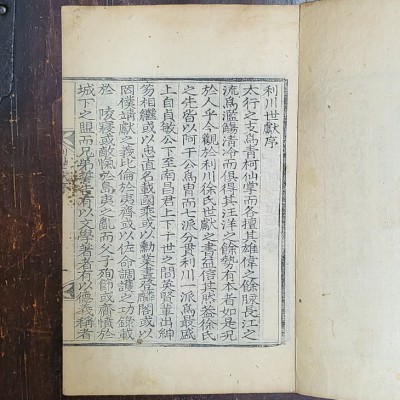 利川世獻序
太行之支爲靑柯仙掌而各擅其雄偉之餘脉長江之
流爲濫觴淸冷而俱得其汪洋之餘勢有本者如是况
於人乎今觀於利川徐氏世獻之書益信其然盖徐氏
之先皆以阿干公爲胄而七派分貫利川一派爲最盛
上自貞敏公下至南昌君上下十世之間英賢輩出紳
笏相繼或以忠直名載函乘或以勳業畫登麟閣或以
罔僕靖獻之義比倫於夷齊或以佐命調護之功錄載
於 或敵愾於島夷之亂而父子殉節或齎憤於
城下之盟而兄弟 有以文學著者有以德義稱者